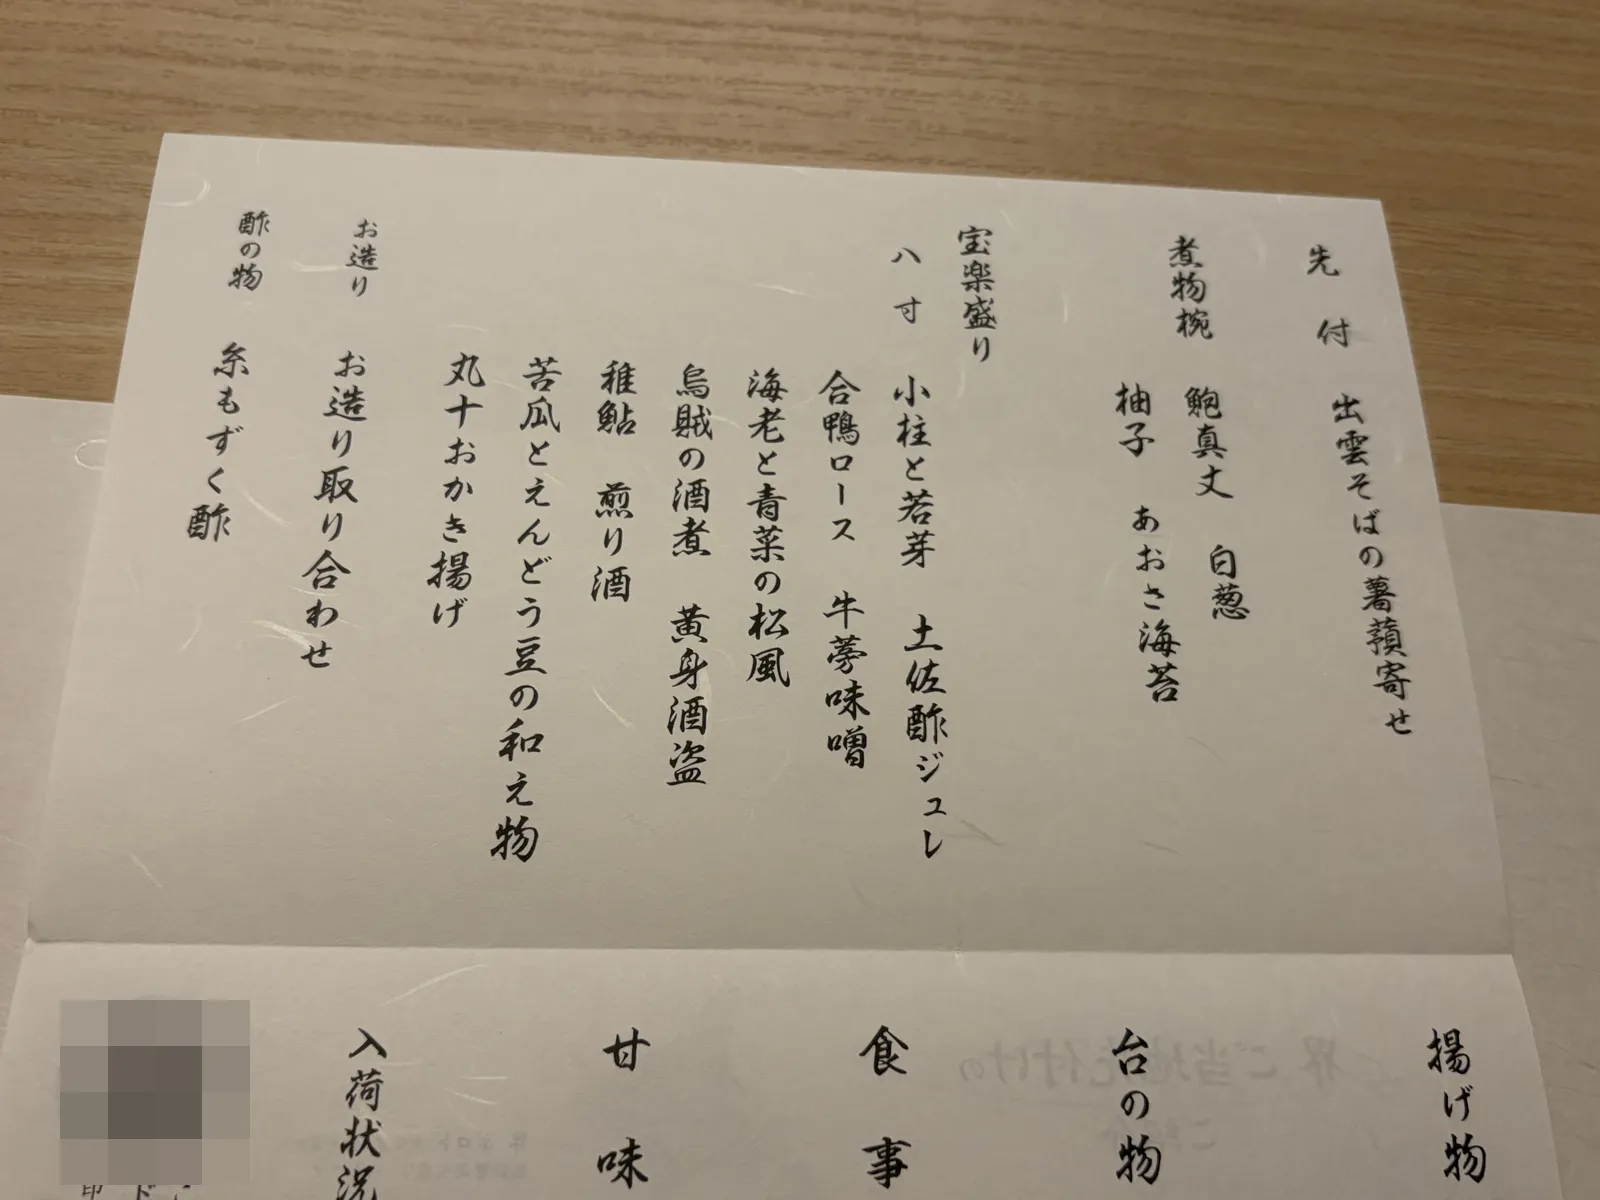 先付 出雲そばの薯蕷寄せ
煮物椀 鮑真丈 白葱
柚子 あおさ海苔
宝楽盛り
八寸 小柱と若芽 土佐酢ジュレ
合鴨ロース 牛蒡味噌
海老と青菜の松風
烏賊の酒煮 黄身酒盗
稚鮎 煎り酒
苦瓜とえんどう豆の和え物
丸十おかき揚げ
お造り お造り取り合わせ
酢の物 糸もずく酢
揚げ物
台の物
食事
甘味
入荷状況